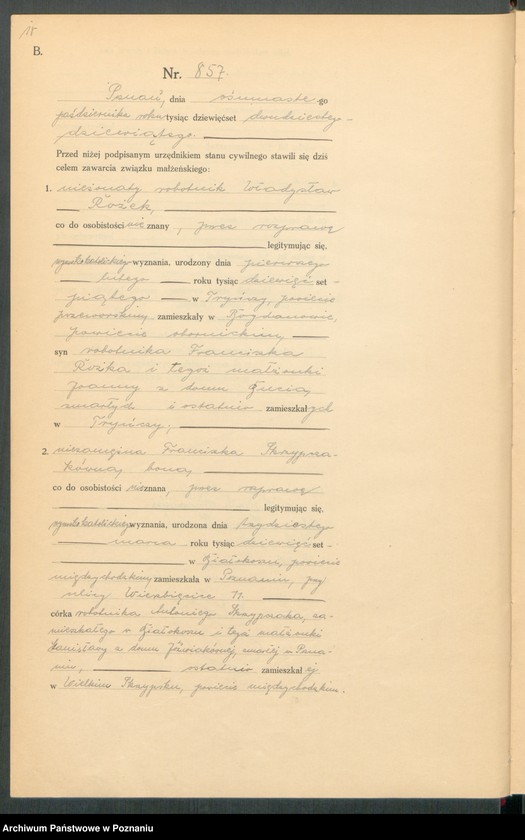 B.
Nr. 857.
Poznań, dnia ósmnastego
października roku tysiąc dziewięćset dwudziestego
dziewiątego.
Przed niżej podpisanym urzędnikiem stanu cywilnego stawili się dziś
celem zawarcia związku małżeńskiego:
1. nieżonaty robotnik Władysław
Rożek,
co do osobistości nie znany, przez rozprawę
legitymując się,
rzymskokatolickiego wyznania, urodzony dnia pierwszego
lutego roku tysiąc dziewięć set
piątego w Tryńczy, powiecie
przeworskim, zamieszkały w Bogdanowie,
powiecie obornickim,
syn robotnika Franciszka
Rożka i tegoż małżonki
Joanny z domu
zmarłych i ostatnio zamieszkałych
w Tryńczy,
2. niezamężna Franciszka Skrzypcza-
kówna,
co do osobistości nie znana, przez rozprawę
legitymując się,
rzymskokatolickiego wyznania, urodzona dnia trzydziestego
marca roku tysiąc dziewięć set
w Białokoszu, powiecie
międzychodzkim, zamieszkała w Poznaniu, przy
ulicy Wierzbięcice 11.
córka robotnika Antoniego Skrzypczaka, za-
mieszkałego w Białokoszu i tegoż małżonki
Stanisławy z domu zmarłej w Pozna-
niu, ostatnio zamieszkałej
w powiecie międzychodzkim.
Archiwum Państwowe w Poznaniu